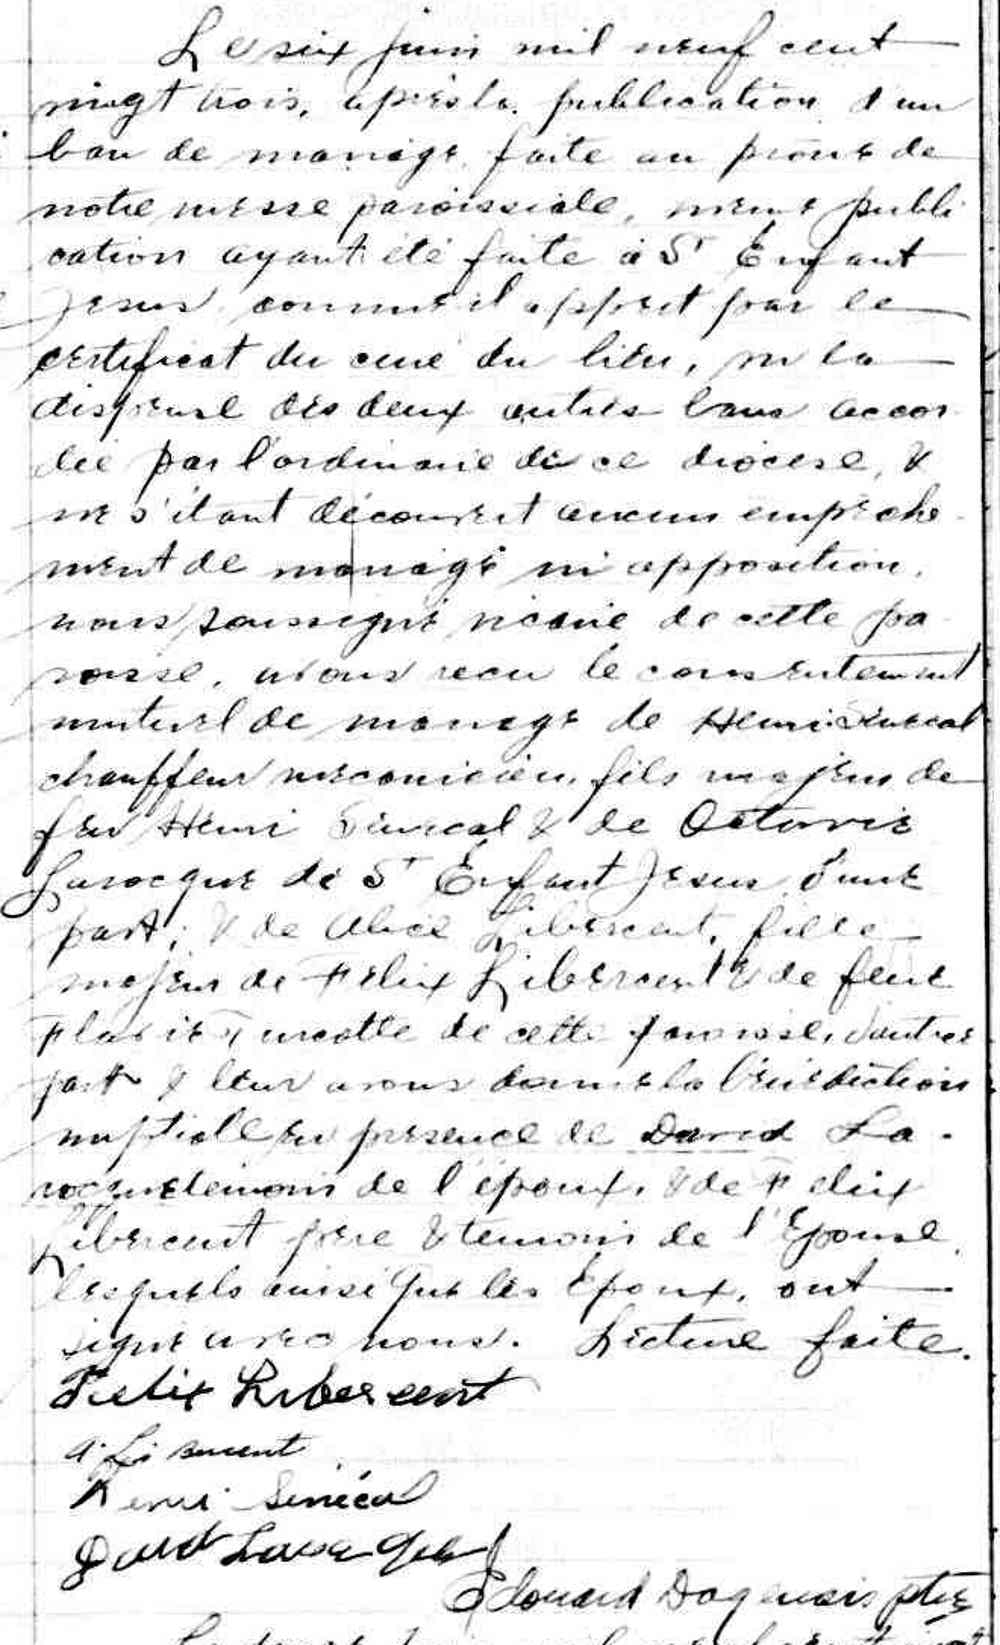 Le six juin mil neuf cent
vingt trois, après la publication d'un
ban de mariage faite au prône de
notre messe paroissiale, même publi
cation ayant été faite à St Enfant
Jesus comme il appert par le
certificat du curé du lieu, vu la
dispense des deux autres bans accor
dée par l'ordinaire de ce diocèse, &
ne s'étant découvert aucun empêche
ment de mariage ni opposition,
nous soussigné vicaire de cette pa
roisse, avons reçu le consentement
mutuel de mariage de Henri Sénécal
chauffeur mécanicien, fils majeur de
feu Henri Sénécal & de Octavie
Larocque de St Enfant Jesus d'une
part; & de Alice Libercent, fille
majeur de Félix Libercent & de feue
Turcotte de cette paroisse, d'autre
part & leur avons donné la bénédiction
nuptiale en présence de David La-
rocque témoin de l'époux, & de Félix
Libercent père & témoin de l'Epouse,
lesquels ainsi que les Epoux, ont
signé avec nous. Lecture faite.
Felix Libercent
Henri Sénécal
David Larocque
Edouard Dagenais ptre